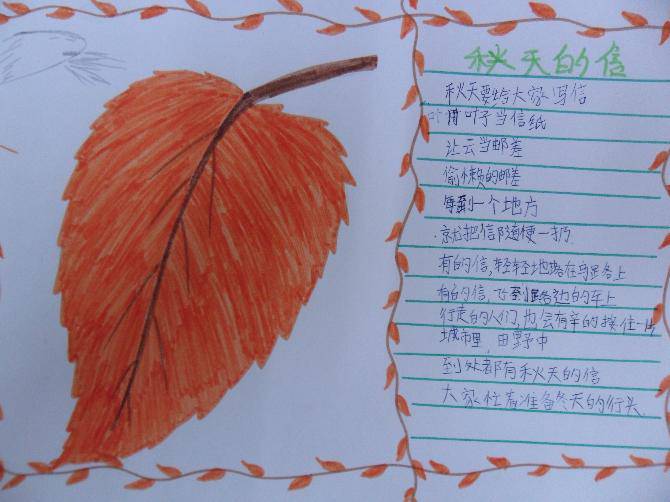 秋天的信
秋天要给大家写信
用叶子当信纸
让云当邮差
偷懒的邮差
每到一个地方
就把信随便一扔
有的信,轻轻地落在马路上
有的信,飞到路边的车上
行走的人们,也会有幸的接住一片
城市里,田野中
到处都有秋天的信
大家忙着准备冬天的行头